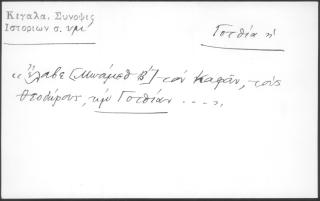 Κιγαλα. Συνοψις
Ιστοριων σ. νμι
Γοτθία η
« ἔλαβε [Μωάμεθ Β'] τόν Καφᾶν, τούς
Θεοδώρους, τήν Γοτθίαν .... »